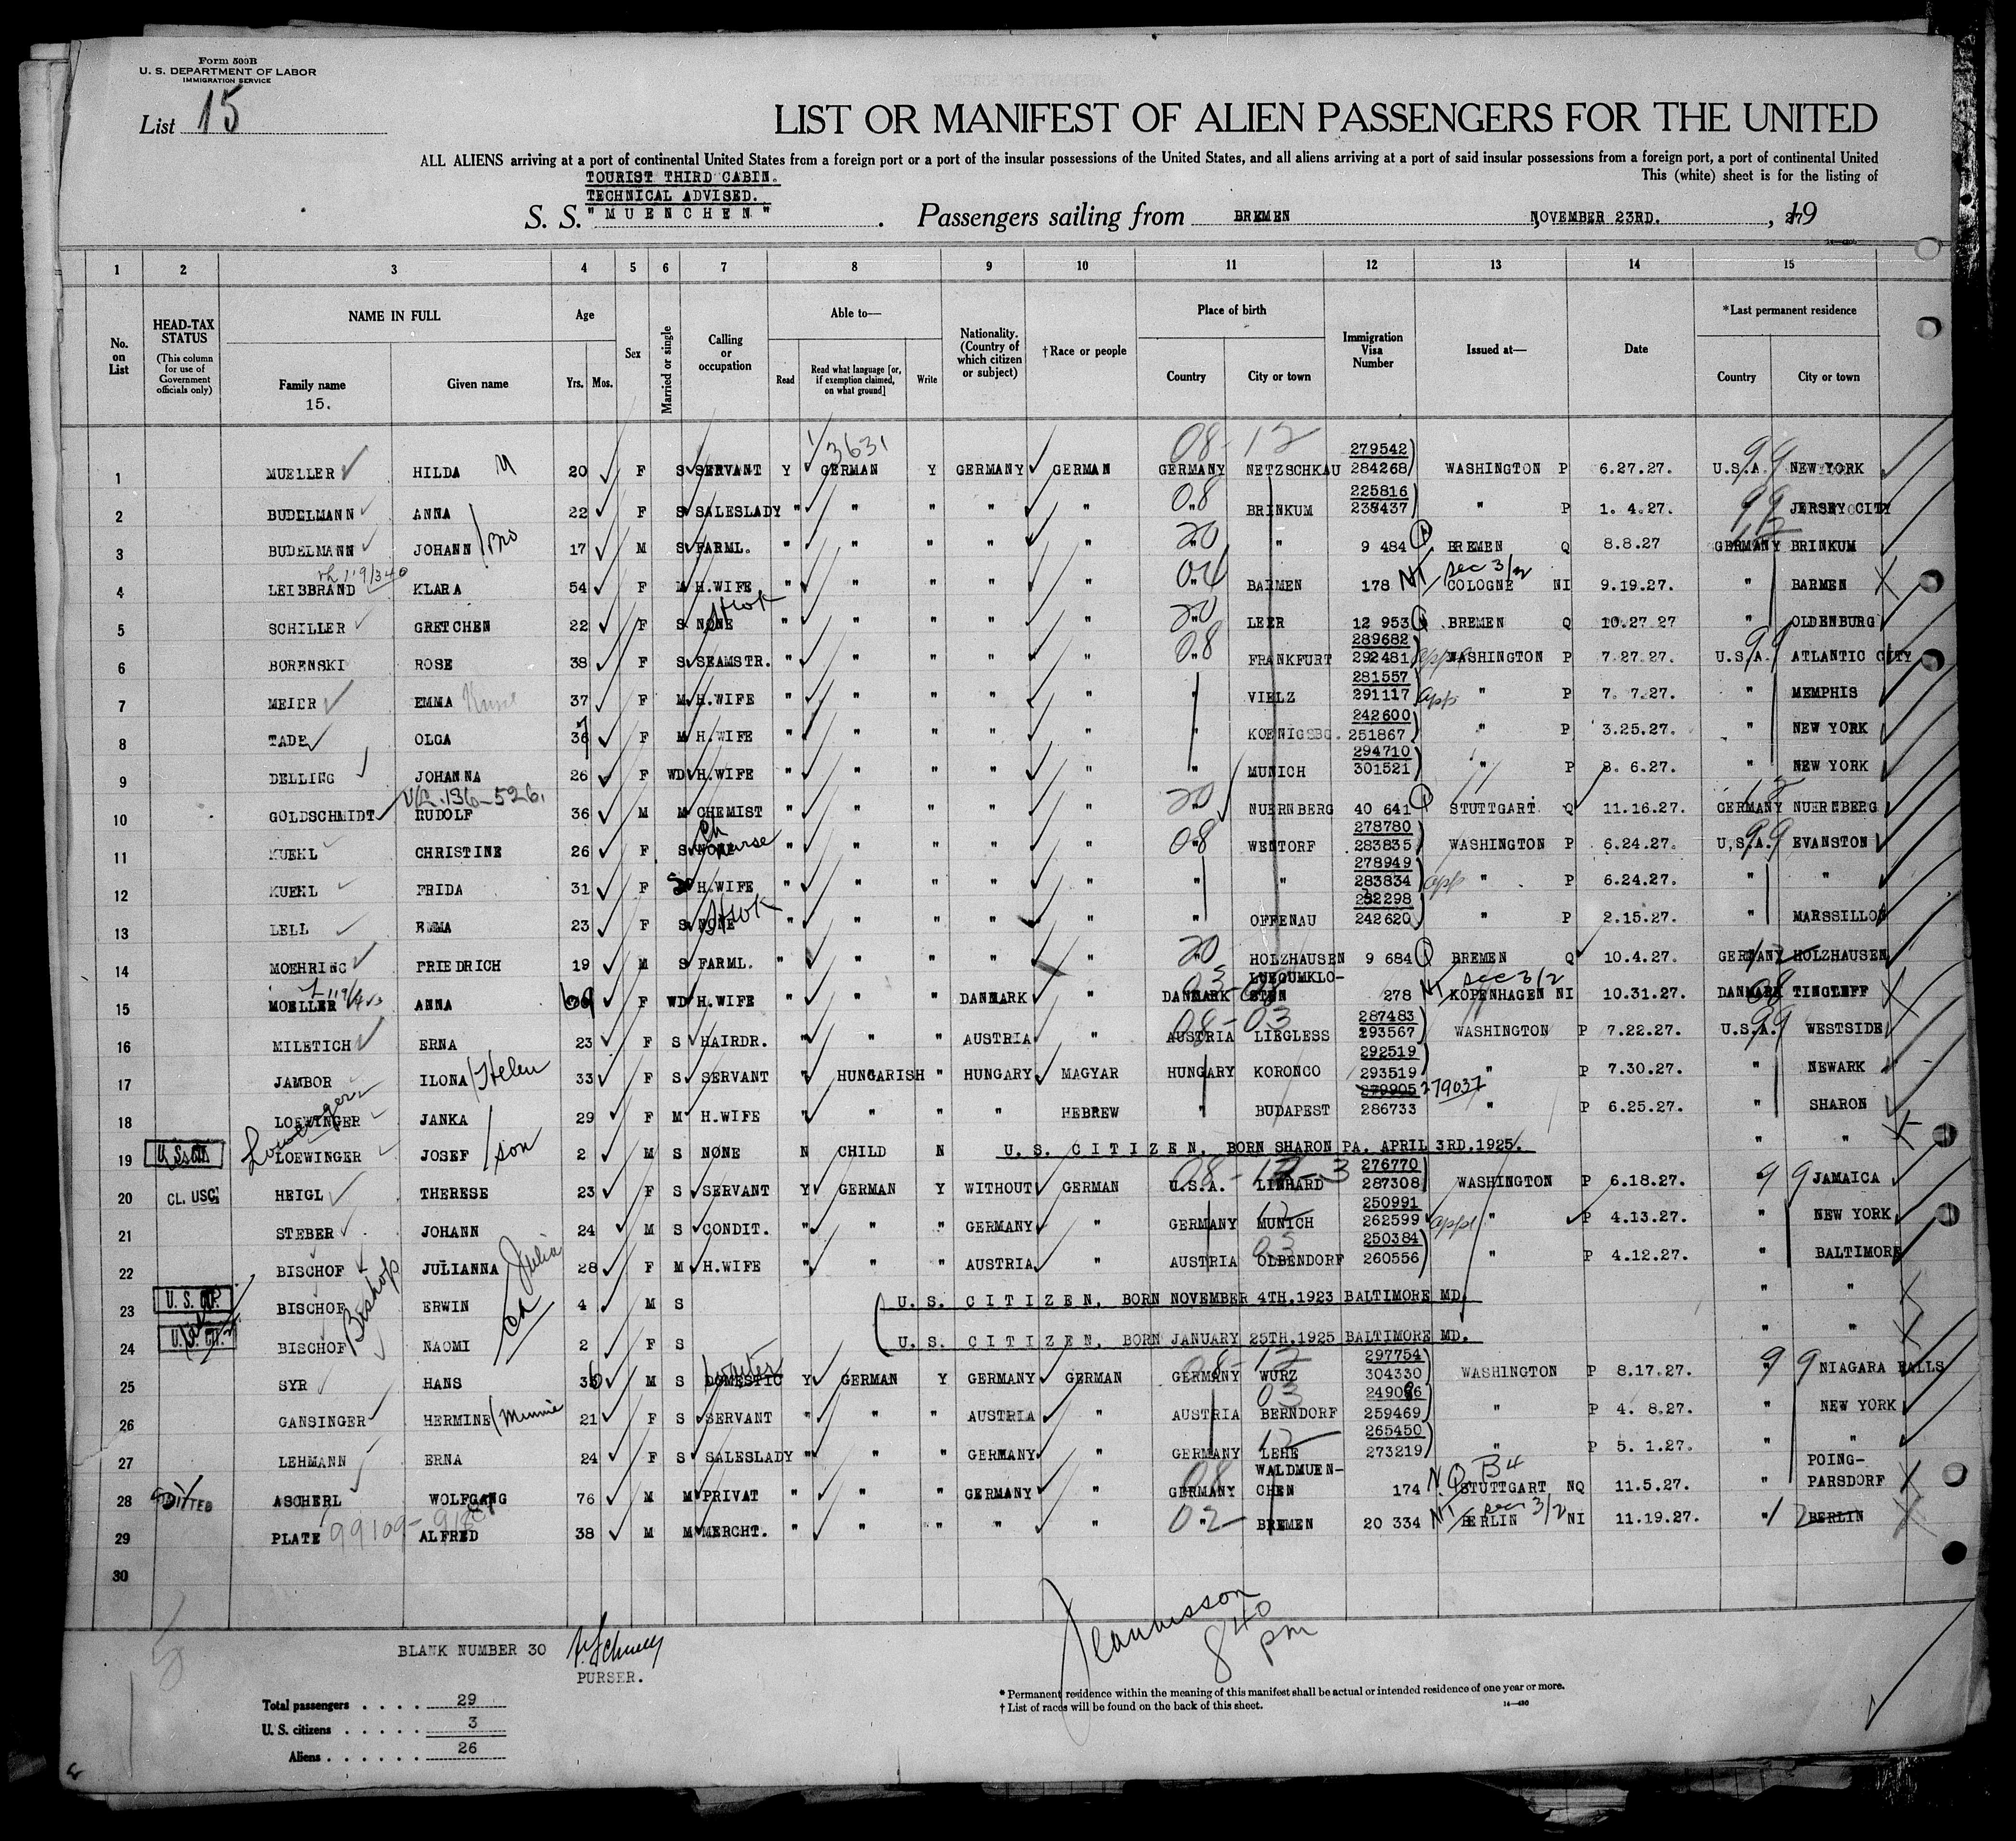 Form 500B
U. S. DEPARTMENT OF LABOR
IMMIGRATION SERVICE
List 15
LIST OR MANIFEST OF ALIEN PASSENGERS FOR THE UNITED
ALL ALIENS arriving at a port of continental United States from a foreign port or a port of the insular possessions of the United States, and all aliens arriving at a port of said insular possessions from a foreign port, a port of continental United
TOURIST THIRD CABIN. This (white) sheet is for the listing of
TECHNICAL ADVISED.
S. S. "MUENCHEN". Passengers sailing from BREMEN, NOVEMBER 23RD., 1927
1 2 3 4 5 6 7 8 9 10 11 12 13 14 15
No. on List
HEAD-TAX STATUS (This column for use of Government officials only)
NAME IN FULL
Family name
15.
Given name
Age
Yrs. Mos.
Sex
Married or single
Calling or occupation
Able to—
Read
Read what language [or, if exemption claimed, on what ground]
Write
Nationality. (Country of which citizen or subject)
† Race or people
Place of birth
Country
City or town
Immigration Visa Number
Issued at—
Date
*Last permanent residence
Country
City or town
3631 08-12 279542 99
1 MUELLER HILDA M 20 F S SERVANT Y GERMAN Y GERMANY GERMAN GERMANY NETZSCHKAU 284268 WASHINGTON P 6.27.27. U.S.A. NEW YORK
08 225816 99
2 BUDELMANN ANNA 22 F S SALESLADY " " " " " " BRINKUM 238437 " P 1. 4.27. JERSEY CITY
20 12
3 BUDELMANN JOHANN /Bro 17 M S FARML. " " " " " " " 9 484 BREMEN Q 8.8.27 GERMANY BRINKUM
119/340 04 NI sec 3/2
4 LEIBBRAND KLARA 54 F M H.WIFE " " " " " " BARMEN 178 COLOGNE NI 9.19.27. " BARMEN
20
5 SCHILLER GRETCHEN 22 F S NONE " " " " " " LEER 12 953 BREMEN Q 10.27 27 " OLDENBURG
08 289682 99
6 BORENSKI ROSE 38 F S SEAMSTR. " " " " " " FRANKFURT 292481 WASHINGTON P 7.27.27. U.S.A. ATLANTIC CITY
281557
7 MEIER EMMA 37 F M H.WIFE " " " " " " VIELZ 291117 app " P 7. 7.27. " MEMPHIS
242600
8 TADE OLGA 36 F M H.WIFE " " " " " " KOENIGSBG. 251867 " P 3.25.27. " NEW YORK
294710
9 DELLING JOHANNA 26 F WD H.WIFE " " " " " " MUNICH 301521 " P 8. 6.27. " NEW YORK
136-526. 20 12
10 GOLDSCHMIDT RUDOLF 36 M M CHEMIST " " " " " " NUERNBERG 40 641 STUTTGART Q 11.16.27. GERMANY NUERNBERG
nurse 08 278780 99
11 KUEHL CHRISTINE 26 F S NONE " " " " " " WENTORF 283835 WASHINGTON P 6.24.27. U.S.A. EVANSTON
278949
12 KUEHL FRIDA 31 F H.WIFE " " " " " " " 283834 app " P 6.24.27. " "
13 LELL EMMA 23 F S NONE " " " " " OFFENAU 242620 " P 2.15.27. " MARSSILLOS
20 12
14 MOEHRING FRIEDRICH 19 M S FARML. " " " " " HOLZHAUSEN 9 684 BREMEN Q 10.4.27. GERMANY HOLZHAUSEN
LUEGUMKLO- NI sec 3/2 08
15 MOELLER ANNA 69 F WD H.WIFE " " " DANMARK " DANMARK STEN 278 KOPENHAGEN NI 10.31.27. DANMARK TINGLEFF
08-03 287483 99
16 MILETICH ERNA 23 F S HAIRDR. " " " AUSTRIA " AUSTRIA LIEGLESS 293567 WASHINGTON P 7.22.27. U.S.A. WESTSIDE
292519
17 JAMBOR ILONA /Helen 33 F S SERVANT " HUNGARISH " HUNGARY MAGYAR HUNGARY KORONCO 293519 " P 7.30.27. " NEWARK
279905 279037
18 LOEWINGER JANKA 29 F M H.WIFE " " " HEBREW " BUDAPEST 286733 " P 6.25.27. " SHARON
19 U.S. CIT. LOEWINGER JOSEF /son 2 M S NONE N CHILD N U. S. CITIZEN, BORN SHARON PA. APRIL 3RD.1925. " "
276770
20 CL. USC HEIGL THERESE 23 F S SERVANT Y GERMAN Y WITHOUT GERMAN U.S.A. LINHARD 287308 WASHINGTON P 6.18.27. 99 JAMAICA
12 250991
21 STEBER JOHANN 24 M S CONDIT. " " " GERMANY " GERMANY MUNICH 262599 " P 4.13.27. " NEW YORK
Julia 03 250384
22 BISCHOF Bishop JULIANNA 28 F M H.WIFE " " " AUSTRIA " AUSTRIA OLBENDORF 260556 " P 4.12.27. " BALTIMORE
23 U.S. CIT. BISCHOF ERWIN ch 4 M S U. S. CITIZEN, BORN NOVEMBER 4TH.1923 BALTIMORE MD. " "
24 U.S. CIT. BISCHOF NAOMI 2 F S U. S. CITIZEN, BORN JANUARY 25TH.1925 BALTIMORE MD. " "
waiter 08-12 297754
25 SYR HANS 36 M S DOMESTIC Y GERMAN Y GERMANY GERMAN GERMANY WURZ 304330 WASHINGTON P 8.17.27. 99 NIAGARA FALLS
03
26 GANSINGER HERMINE /Minnie 21 F S SERVANT " " " AUSTRIA " AUSTRIA BERNDORF 259469 " P 4. 8.27. " NEW YORK
12 265450
27 LEHMANN ERNA 24 F S SALESLADY " " " GERMANY " GERMANY LEHE 273219 " P 5. 1.27. " "
08 WALDMUEN- N.Q. B4 POING-
28 ASCHERL WOLFGANG 76 M M PRIVAT " " " GERMANY " GERMANY CHEN 174 STUTTGART NQ 11.5.27. " PARSDORF
99109- 02 NI sec 3/2 12
29 PLATE ALFRED 38 M M MERCHT. " " " " " " BREMEN 20 334 BERLIN NI 11.19.27. " BERLIN
30
BLANK NUMBER 30
PURSER.
840
pm
Total passengers . . . . . 29
U. S. citizens . . . . . 3
Aliens . . . . . . 26
* Permanent residence within the meaning of this manifest shall be actual or intended residence of one year or more.
† List of races will be found on the back of this sheet.